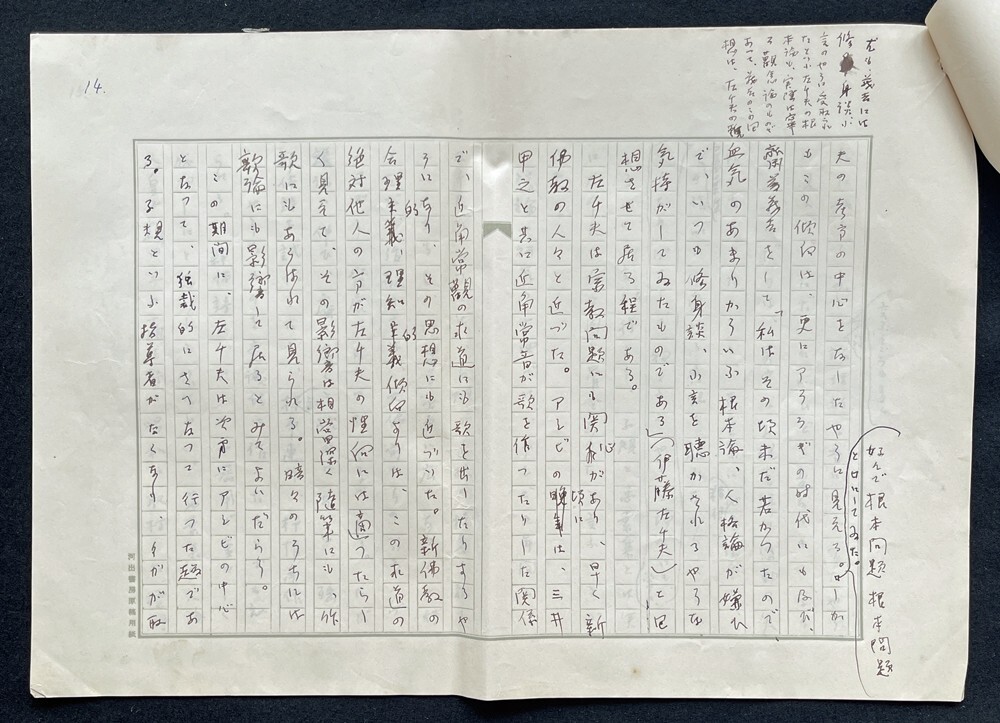 14.
左千夫の
好んで根本問題根本問題
と口にしてゐた。
夫の考方の中心をなしたやうに見える。しか
もこの傾向は、更にアララギの時代にも及び、
齋藤茂吉をして「私はその頃未だ若かつたので、
血気のあまりかういふ根本論、人格論が嫌ひ
で、いつも修身談、小言を聴かされるやうな
気持がしてゐたものである」(伊藤左千夫)と回
想させて居る程である。
左千夫は宗教問題にも関心があり、早く新
佛教の人々と近づいた。アシビの晩年頃には、三井
甲之と共に近角常音が歌を作つたりした関係
で、近角常觀の求道にも歌を出したりするや
うになり、その思想にも近づいた。新佛教の
合理主義的、理知主義的傾向よりは、この求道の
絶対他人の方が左千夫の性向には適つたらし
く見えて、その影響は相当深く随筆にも、作
歌にもあらはれて見られる。暗々のうちには
歌論にも影響して居るとみてよいだらう。
この期間に、左千夫は次第にアシビの中心
となつて、独裁的にさへなつて行つた趣であ
る。子規といふ指導者がなくなり、
河出書房原稿用紙